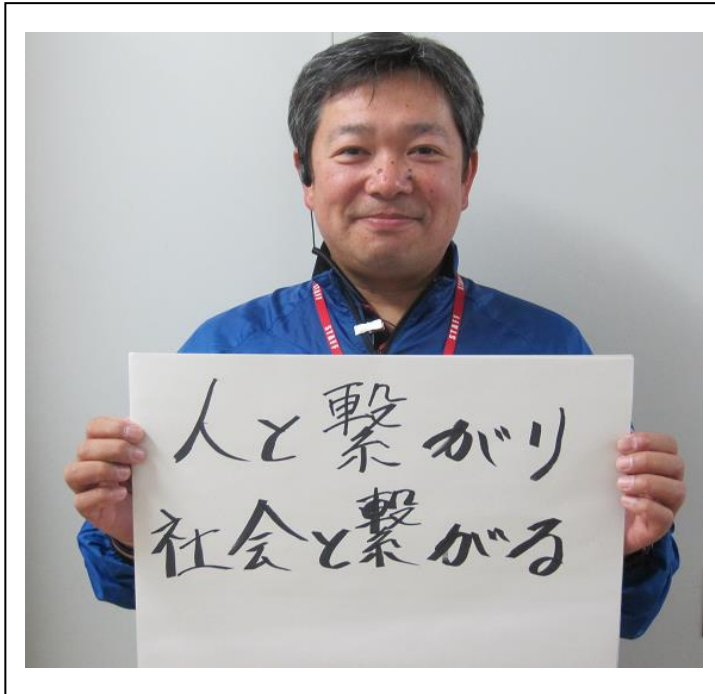 STAFF
STAFF
人と繋がり
社会と繋がる